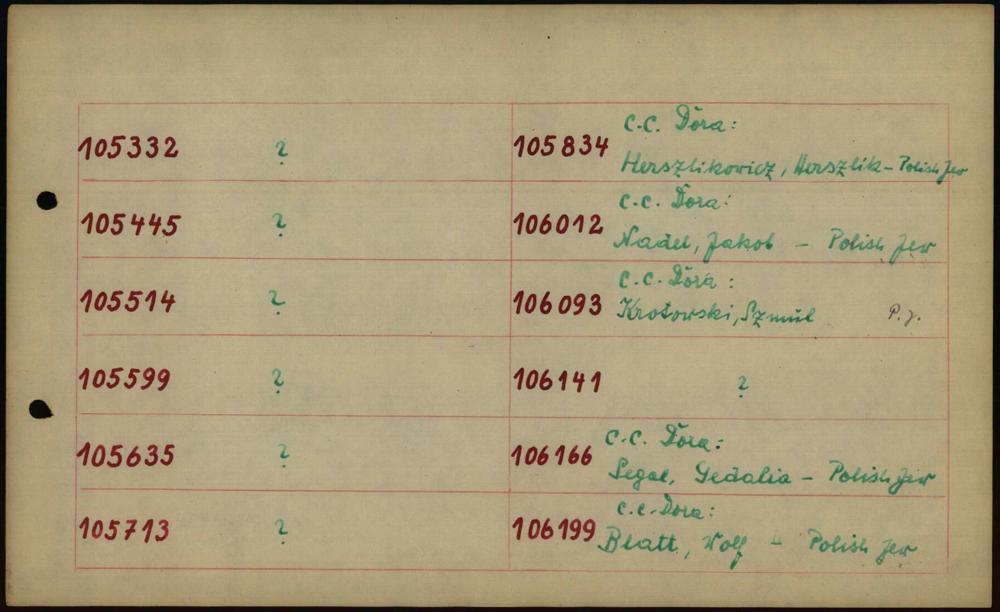 105332 ?
105445 ?
105514 ?
105599 ?
105635 ?
105713 ?
C.C. Dora:
105834 Herszlikowicz, Herszlik – Polish Jew
C.C. Dora:
106012 Nadel, Jakob – Polish Jew
C.C. Dora:
106093 Krotowski, Szmul P.J.
106141 ?
C.C. Dora:
106166 Segal, Gedalia – Polish Jew
C.C. Dora:
106199 Blatt, Wolf – Polish Jew